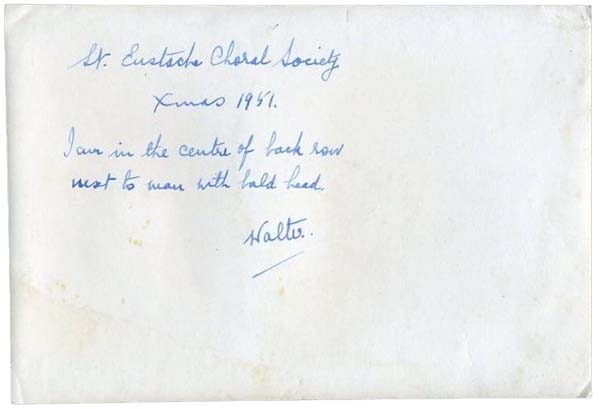 St. Eustache Choral Society
Xmas 1951.
I am in the centre of back row
next to man with bald head.
Walter.